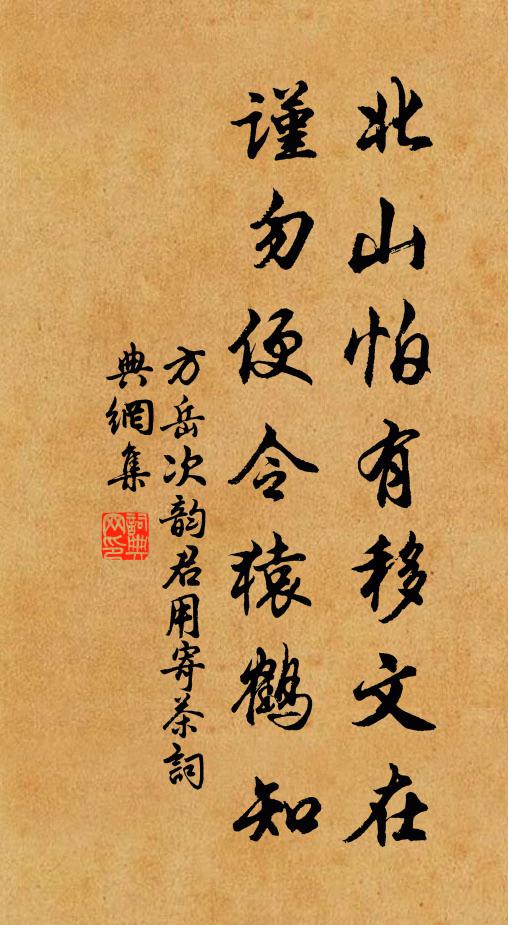 北山怕有移文在
謹勿便令猿鶴知
方岳次韵君用寄茶詞
典網集
詞典網印